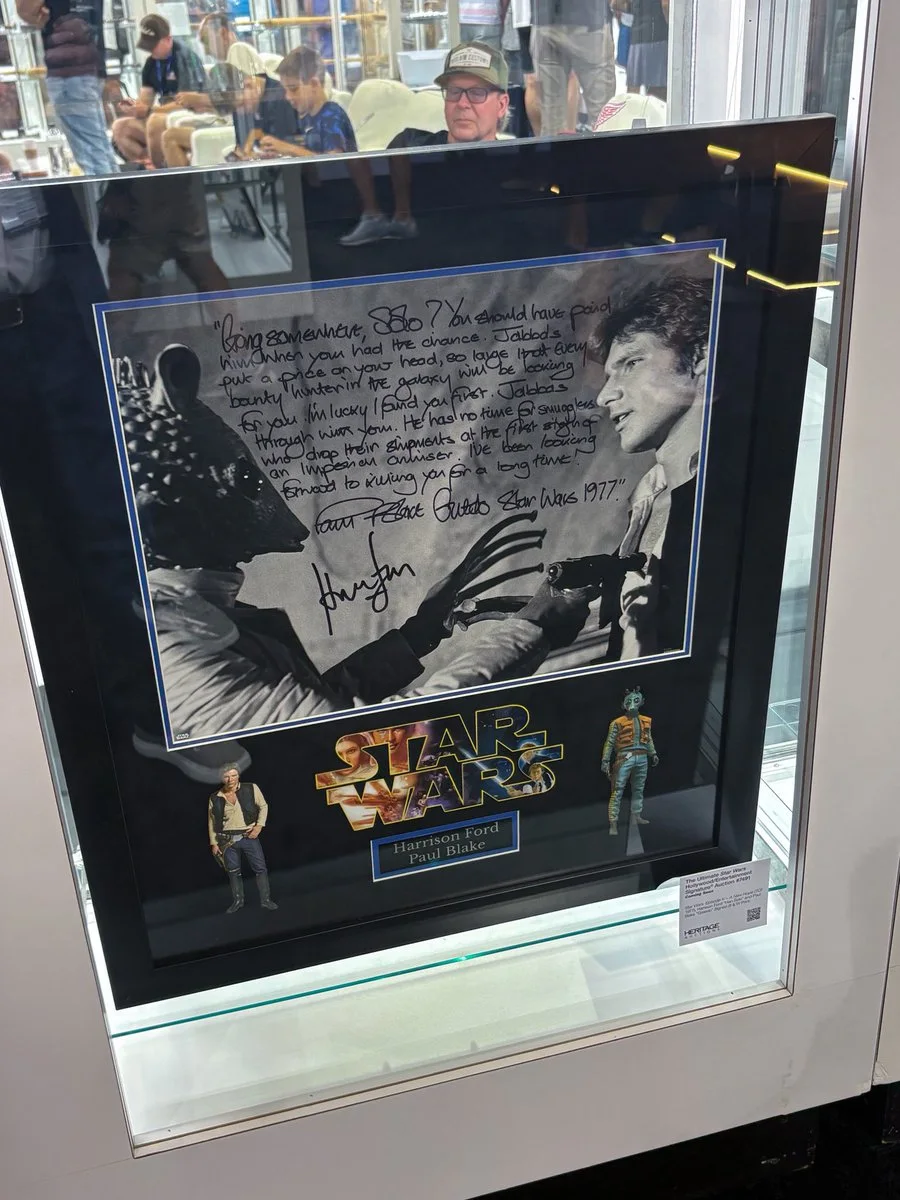 "Going somewhere, Solo? You should have paid
him when you had the chance. Jabbas
put a price on your head, so large that every
bounty hunter in the galaxy will be looking
for you I'm lucky I found you first. Jabbas
through with you. He has no time for smugglers
who drop their shipments at the first sight of
an Imperial cruiser. I've been looking
forward to killing you for a long time."
Paul Blake Greedo Star Wars 1977."
STAR
WARS
Harrison Ford
Paul Blake
The Ultimate Star Wars
Hollywood/Entertainment
Signature® Auction #7691
Coming Soon
HERITAGE
AUCTIONS